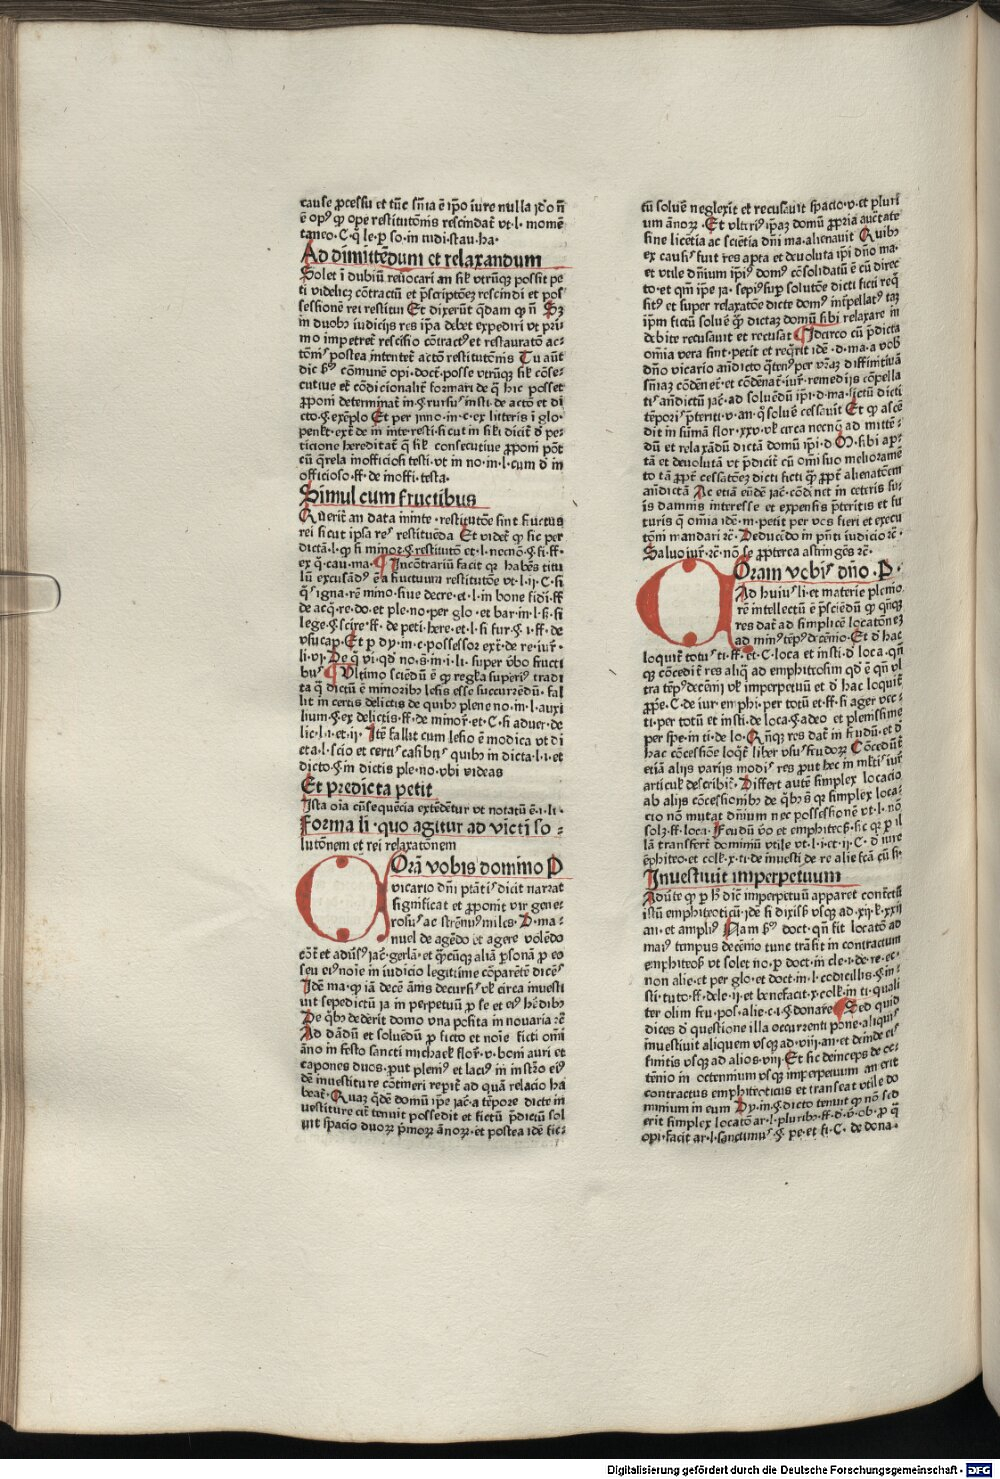 cause ꝓcessu et tūc sn̄ia ē ip̄o iure nulla idͦo nō
ē opꝰ ꝙ ope restitutōnis rescindat᷑ vt·l·momē
taneo·C·q̄ le·ꝑ so·in iudi·stau·ha·
Ad dimittēdum et relaxandum
Solet ī dubiū reuocari an sil᷑ vtrūqꝫ possit pe
ti videlicꝫ cōtractū et p̄scriptōeꝫ rescindi et pos
sessionē rei restitui Et dixerūt q̄dam ꝙ nō Sꝫ
in duobꝰ iudicijs res ip̄a debet expediri vt pri
mo impetret᷑ rescisio cōtractꝰ et restaurato ac
tōnis postea intentet᷑ actō restitutōnis Tu aūt
dic ẜm cōmunē opi·doct·posse vtrūqꝫ sil᷑ cōse
cutiue et cōdicionalit᷑ formari de q̄ hic posset
ꝓponi determinat᷑ in·§·rursus insti·de actō et di
cto·§·exēplo Et per inno·in·c·ex litteris ī glo·
ticione hereditat᷑ q̄ sil᷑ consecutiue ꝓponi pōt
cū q̄rela inofficiosi testi·vt in no·in·l·cum d̄ in
officioso·ff·de inoffi·testa·
Simul cum fructibus
Querit᷑ an data in inte·restitutōe sint fructus
rei sicut ipsa res restituēda Et videt᷑ ꝙ sic per
dictā·l·ꝙ si minor·§·restitutō et·l·necnō·§·si·ff·
ex q̄·cau·ma· Incōtrariū facit qꝛ habēs titu
lū excusādꝰ ē a fructuum restitutōe vt·l·ii·C·si
de acq̄·re·do·et ple·no·per glo·et bar·in·l·ẜ·si
lege·§·scire·ff·de peti·here·et·l·si fur·§·i·ff·de
vsucap·Et ꝑ dy·in·c·possessor ext᷑·de re·iur᷑·
li·vi·De q̄ vi·qd̄ no·s·in·i·li·super v̄bo fructi
bus Vltimo sciēdū ē ꝙ regl᷑a superiꝰ tradi
ta q̄ dictū ē minoribꝫ lesis esse succurrēdū·fal
lit in certis delictis de quibꝫ plene no·in·l·auxi
lium·§·ex delictis·ff·de minor᷑·et·C·si aduer·de
lic·l·i·et·ii· Itē fallit cum lesio ē modica vt di
cta·l·scio et certis casibus quibꝫ in dicta·l·i·et
dicto·§·in dictis ple·no·vbi videas
Et predicta petit
Ista oīa cūsequēcia extēdētur vt notatū ē·i·li·
Forma li·quo agitur ad victi so-
lutōnem et rei relaxatōnem
Corā vobis domino P
vicario dn̄i ptātis dicit narrat
significat et ꝓponit vir gene
rosus ac strēnuꝰ miles·D·ma-
nuel de agēdo et agere volēdo
cōt᷑ et aduersꝰ jac·gerlā·et q̄cūqꝫ aliā ꝑsonā ꝓ eo
seu eiꝰ noīe in iudicio legitime cōparētē dicēs
Idē ma·ꝙ iā decē ānis decursis vl᷑ circa inuesti
uit sepedictū ja in perpetuū ꝓ se et eiꝰ hēdibꝫ
De q̄bꝫ dederit domo vna posita in nouaria rē
Ad dādū et soluēdū ꝓ ficto et noīe ficti om̄i
āno in festo sancti michael᷑ flor·v·boni auri et
capones duos·ꝓut pleniꝰ et laciꝰ in instr̄o eiꝰ
dē inuestiture cōtineri reperit᷑ ad quā relacio ha
beat᷑·Quaꝝ q̄dē domū ip̄e jac·a tēpore dicte in
uestiture cit᷑ tenuit possedit et fictū p̄dictū sol
uit spacio duoꝝ pͥmoꝝ ānoꝝ·et postea idē fic-
tū soluē neglexit et recusauit spacio·v·et pluri
um ānoꝝ·Et vlteriꝰ ip̄aꝫ domū ꝓpria auctate
sine licētia ac sciētia dn̄i ma·alienauit Quibꝫ
ex causis fuit res apta et deuoluta ip̄i dn̄o ma·
et vtile dn̄ium ip̄iꝰ domꝰ cōsolidatū ē cū direc
to·et qm̄ ip̄e ja·sepiꝰ suꝑ solutōe dicti ficti req̄
sitꝰ et super relaxatōe dicte domꝰ int̄pellatꝰ taꝫ
ip̄m fictū soluē q̄ꝫ dictaꝫ domū sibi relaxare in
debite recusauit et recusat Idcirco cū p̄dicta
om̄ia vera sint·petit et req̄rit idē·d·ma·a vob
dn̄o vicario an̄dicto q̄tenꝰ per vr̄aꝫ diffinitiuā
sn̄iaꝫ cōdēnet᷑·et cōdēnat᷑·iur᷑·remedijs cōpella
tis an̄dictū jac·ad soluēdū ip̄i·d·ma·fictū dicti
tēporis p̄teriti·v·an·q̄s soluē cessauit Et ꝙ ascē
dit in sūmā flor·xxv·vl᷑ circa necnō ad mittē-
dū et relaxādū dictā domū ip̄i·d M·sibi aꝑ-
tā et deuolutā vt p̄dicit᷑ cū om̄i suo melioramē
to tā ꝓpt᷑ cessatōeꝫ dicti ficti q̄ꝫ ꝓpt᷑ alienatōem
an̄dictā Ac etiā eūdē jac·cōdinct in ceteris su-
is damnis interesse et expensis p̄teritis et fu
turis q̄ om̄ia idē·m·petit per vos fieri et execu
tōni mandari rē·Deducēdo in p̄nti iudicio rē·
Saluo iur᷑·rē·nō se ꝓpterca astringēs rē·
Coram vobis dn̄o·P·
Ad huiꝰ li·et materie plenio
rē intellectū ē p̄sciēdū ꝙ qn̄qꝫ
res dat᷑ ad simplicē locatōneꝫ
ad minꝰ tēpꝰ decēnio·Et d̄ hac
loquit᷑ totus ti·ff·et·C·loca et insti·d̄ loca·qn̄
qꝫ cōcedit᷑ res aliq̄ ad emphitosim qd̄ ē qn̄ vl
tra tēpꝰ decēnij vl᷑ imperpetuū et d̄ hac loquit᷑
ꝓpͥe·C·de iur·emphi·per totū et·ff·si ager vec-
ti·per totū et insti·de loca·§·adeo et plenissime
per spe·in ti·de lo·Qn̄qꝫ res dat᷑ in feudū·et d̄
hac cōcessiōe loq̄t᷑ liber vsus feudoꝝ Cōcedūt᷑
etiā alijs varijs modis res ꝓut hec in ml᷑tis iur᷑
articul᷑ describit᷑·Differt autē simplex locacio
ab aliijs cōcessionibꝫ de q̄bꝫ s qꝛ simplex loca-
cio nō mutat dn̄ium nec possessionē vt·l·nō
solꝫ·ff·loca·Feudū v̄o et emphiteoẜ·sic qꝛ ꝑ il
lā transfert᷑ dominiū vtile vt·l·i·et·ii·C·d̄ iure
ēphiteo·et coll᷑·x·ti·de inuesti·de re alie·fcā cū si·
Inuestiuit imperpetuum
Aduite ꝙ ꝑ h̄ dicē imperpetuū apparet contctū
istū emphiteoticū·idē si dixisẜ vsqꝫ ad·xij·l᷑·xxij
an·et ampliꝰ Nam ẜm doct·qn̄ fit locatō ad
maiꝰ tempus decēnio tunc trāsit in contractum
emphiteoẜ vt solet no·ꝑ doct·in cle·i·de re·ec·
non alie·et per glo·et doct·in·l·codicillis·§·in-
sti·tuto·ff·dele·ii·et benefacit·x·coll᷑·in ti·quali
ter olim feu·pos·alie·c·i·§·donare Sed quid
dices d̄ questione illa occurrenti pone·aliquis
inuestiuit aliquem vsqꝫ ad·viij·an·et deinde eis
finitis vsqꝫ ad alios·viij·Et sic deinceps de oc-
tēnio in octennium vsqꝫ imperpetuum an erit
contractus emphiteoticus et transeat vtile do
minium in eum Dy·in·§·dicto tenuit ꝙ non sed
erit simplex locatō ar·l·pluribꝫ·ff·d̄·v̄·ob·ꝓ q̄
opi·facit ar·l·sancimus·§·pe·et si·C·de dona·
Digitalisierung gefördert durch die Deutsche Forschungsgemeinschaft - DFG